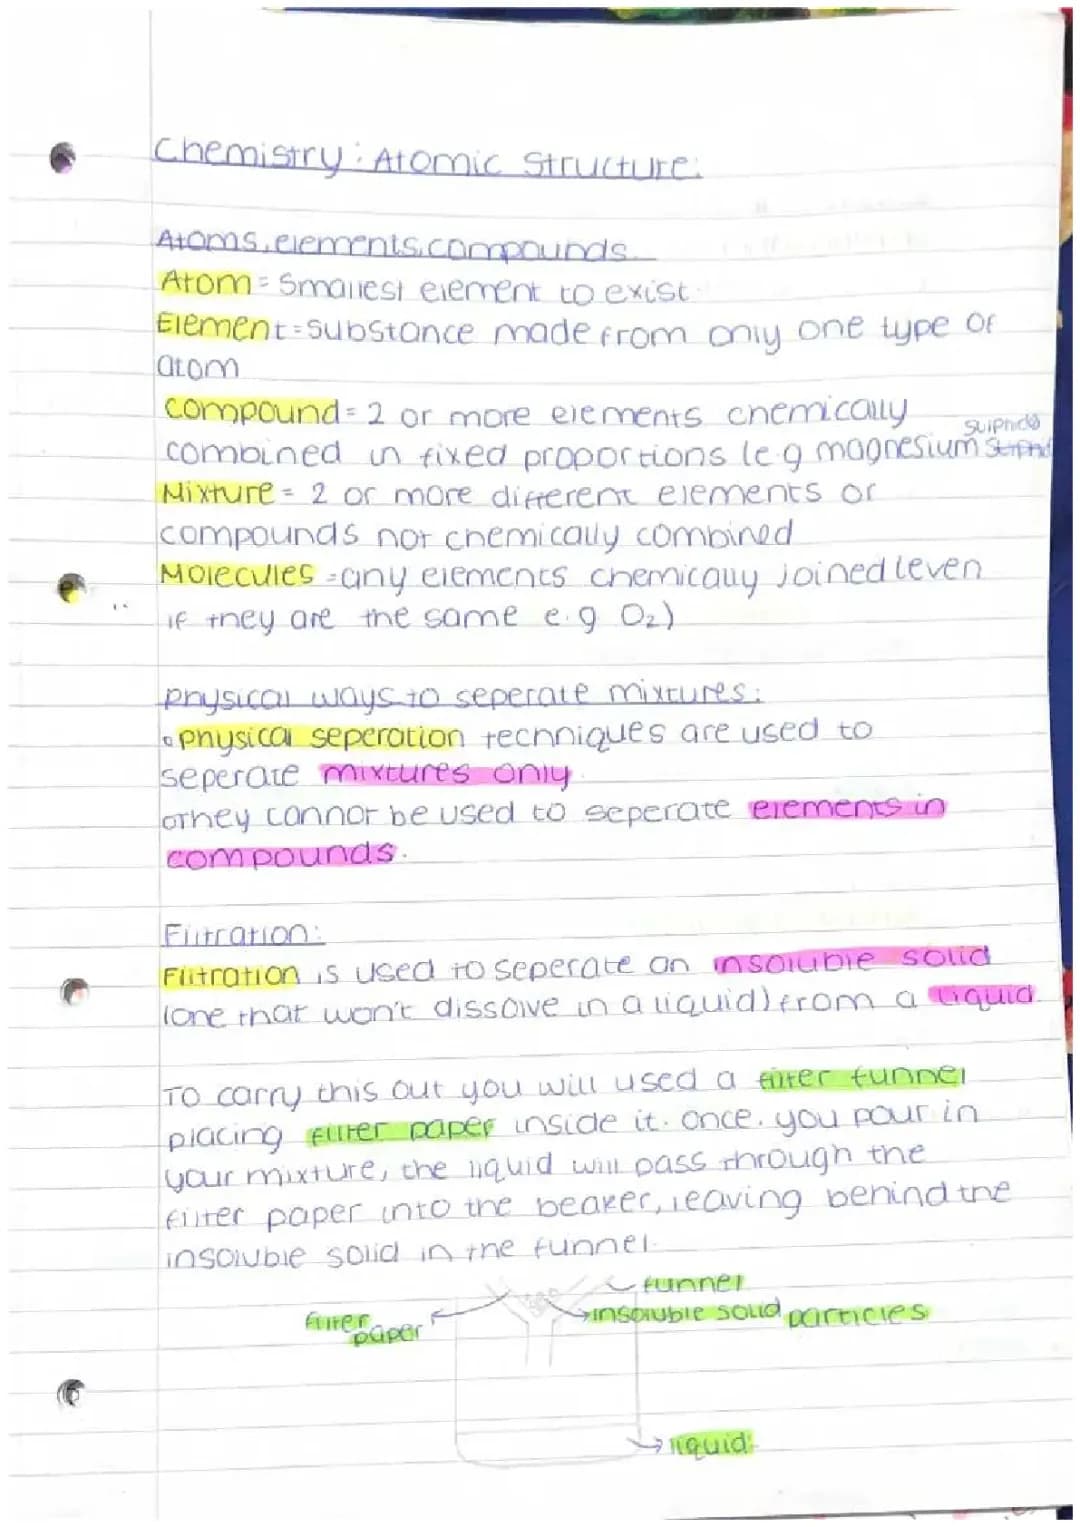 Chemistry: Atomic Structure:
Atoms, elements, compounds.
Atom = Smallest element to exist.
Element = substance made from only one type of
atom
compound = 2 or more elements chemically
sulphide
combined in fixed proportions (e.g magnesium
Mixture = 2 or more different elements or
compounds not chemically combined
Molecules = any elements chemically joined (even
if they are the same e.g O₂)
physical ways to seperate mixtures:
• physical seperation techniques are used to
seperate mixtures only.
• They cannot be used to seperate elements in
compounds.
Filtration:
Filtration is used to seperate an insoluble solid
(one that won't dissolve in a liquid) from a liquid.
To carry this out you will used a filter funnel
placing filter paper inside it. Once. you pour in
your mixture, the liquid will pass through the
filter paper into the beaker, leaving behind the
insoluble solid in the funnel.
funnel
filter paper
insoluble solid particles
liquid